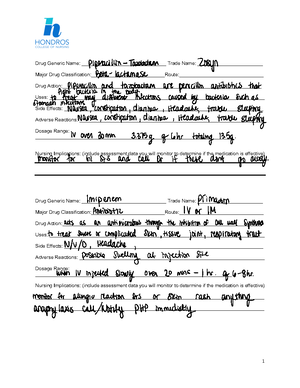 HONDROS
COLLEGE OF NURSING
Drug Generic Name: Piperacillin - Tazobactam Trade Name: Zosyn
Major Drug Classification: Beta-lactamase Route:
Drug Action: Piperacillin and tazobactam are penicillin antibiotics that
fight bacteria in the body
Uses: to treat many different infections caused by bacteria such as
stomach infections
Side Effects: Nausea, constipation, diarrhea, Headache, trouble sleeping
Adverse Reactions: Nausea, constipation, diarrhea, Headache, trouble sleeping
Dosage Range:
IV over 30min 3.375g q 6hr totaling 13.5g
Nursing Implications: (include assessment data you will monitor to determine if the medication is effective)
monitor for S/S and call Dr if these don't go away
Drug Generic Name: Imipenem Trade Name: primaxin
Major Drug Classification: Antibiotic Route: IV or IM
Drug Action: acts as an antimicrobial through the inhibition of cell wall synthesis
Uses: to treat severe or complicated skin, tissue, joint, respiratory tract
Side Effects: N/V/D, Headache,
Adverse Reactions: Possible swelling at injection site
Dosage Range:
when IV injected slowly over 20 mins - 1 hr. q 6-8hr.
Nursing Implications: (include assessment data you will monitor to determine if the medication is effective)
monitor for allergic reaction S/S or skin rash anything
anaphylaxis call/notify PHP immediately
1